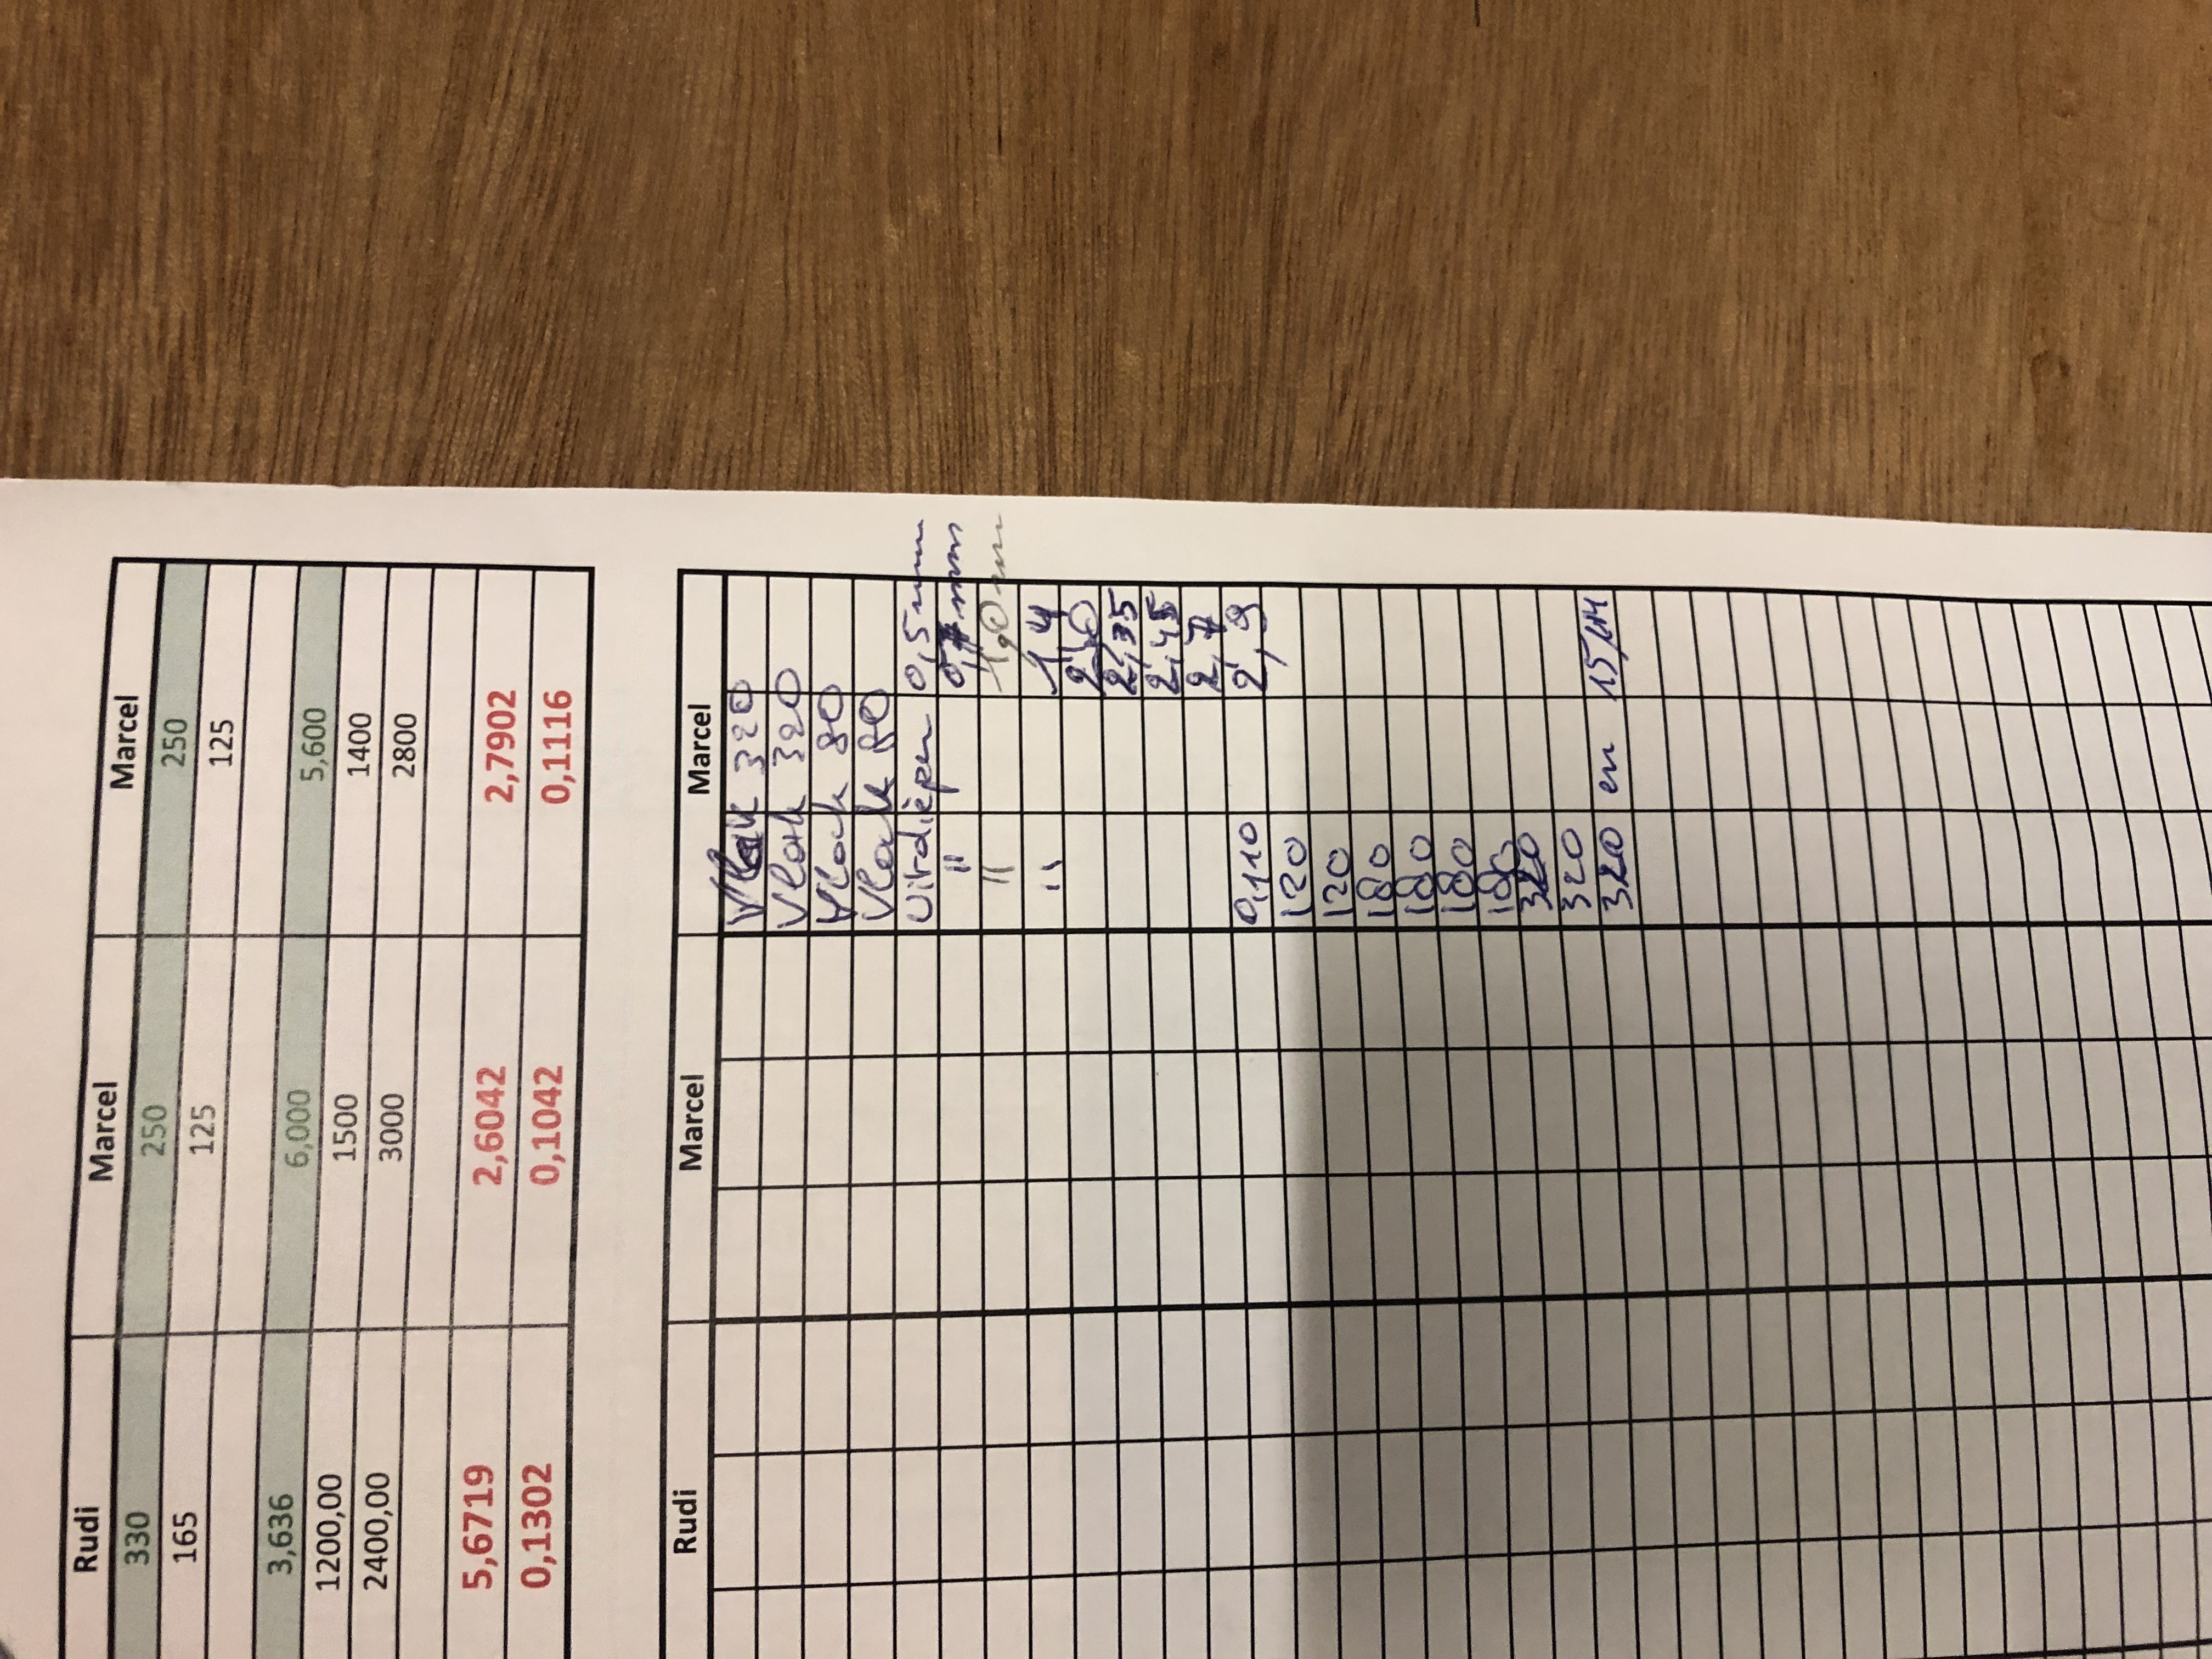 Rudi Marcel Marcel
330 250 250
165 125 125
3,636 6,000 5,600
1200,00 1500 1400
2400,00 3000 2800
5,6719 2,6042 2,7902
0,1302 0,1042 0,1116
Rudi Marcel Marcel
Vlak 320
Vlak 320
Vlak 80
Vlak 80
Uitdiepen 0,5 mm
" 0,7 mm
" 1,0 mm
" 1,4
2,0
2,35
2,45
2,7
0,110 2,9
120
120
180
180
180
180
320
320
320 en 15 µM